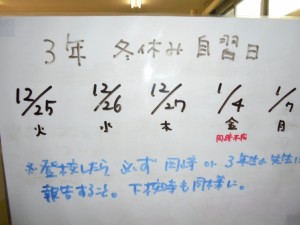 3年 冬休み自習日
12/25 12/26 12/27 1/4 1/7
火 水 木 金 月
※登校したら 必ず 岡崎 or 3年生の先生に
報告すること。下校時も同様に。